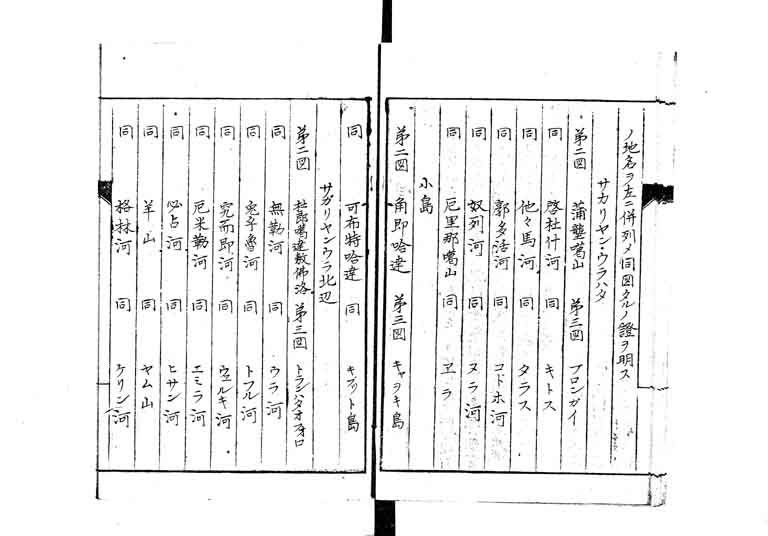 ノ地名ヲ左ニ併列メ同図タルノ證ヲ明ス
サカリヤン・ウラハタ
第二図 蒲盤噶山 第三図 フロンガイ
同 啓社什河 同 キトス
同 他々馬河 同 タラス
同 郭多活河 同 コドホ河
同 奴列河 同 ヌラ河
同 厄里那噶山 同 ヱラ
小島
第二図 角即哈達 第三図 キャヲキ島
同 可布特哈達 同 キブリト島
サガリヤンウラ北辺
第二図 杜郎噶達敖佛洛 第三図 トランハタオフオロ
同 無勒河 同 ウラ河
同 兎乎魯河 同 トフル河
同 究而即河 同 ウェルキ河
同 厄米勒河 同 エミラ河
同 必占河 同 ヒサン河
同 羊山 同 ヤム山
同 格林河 同 ケリン河